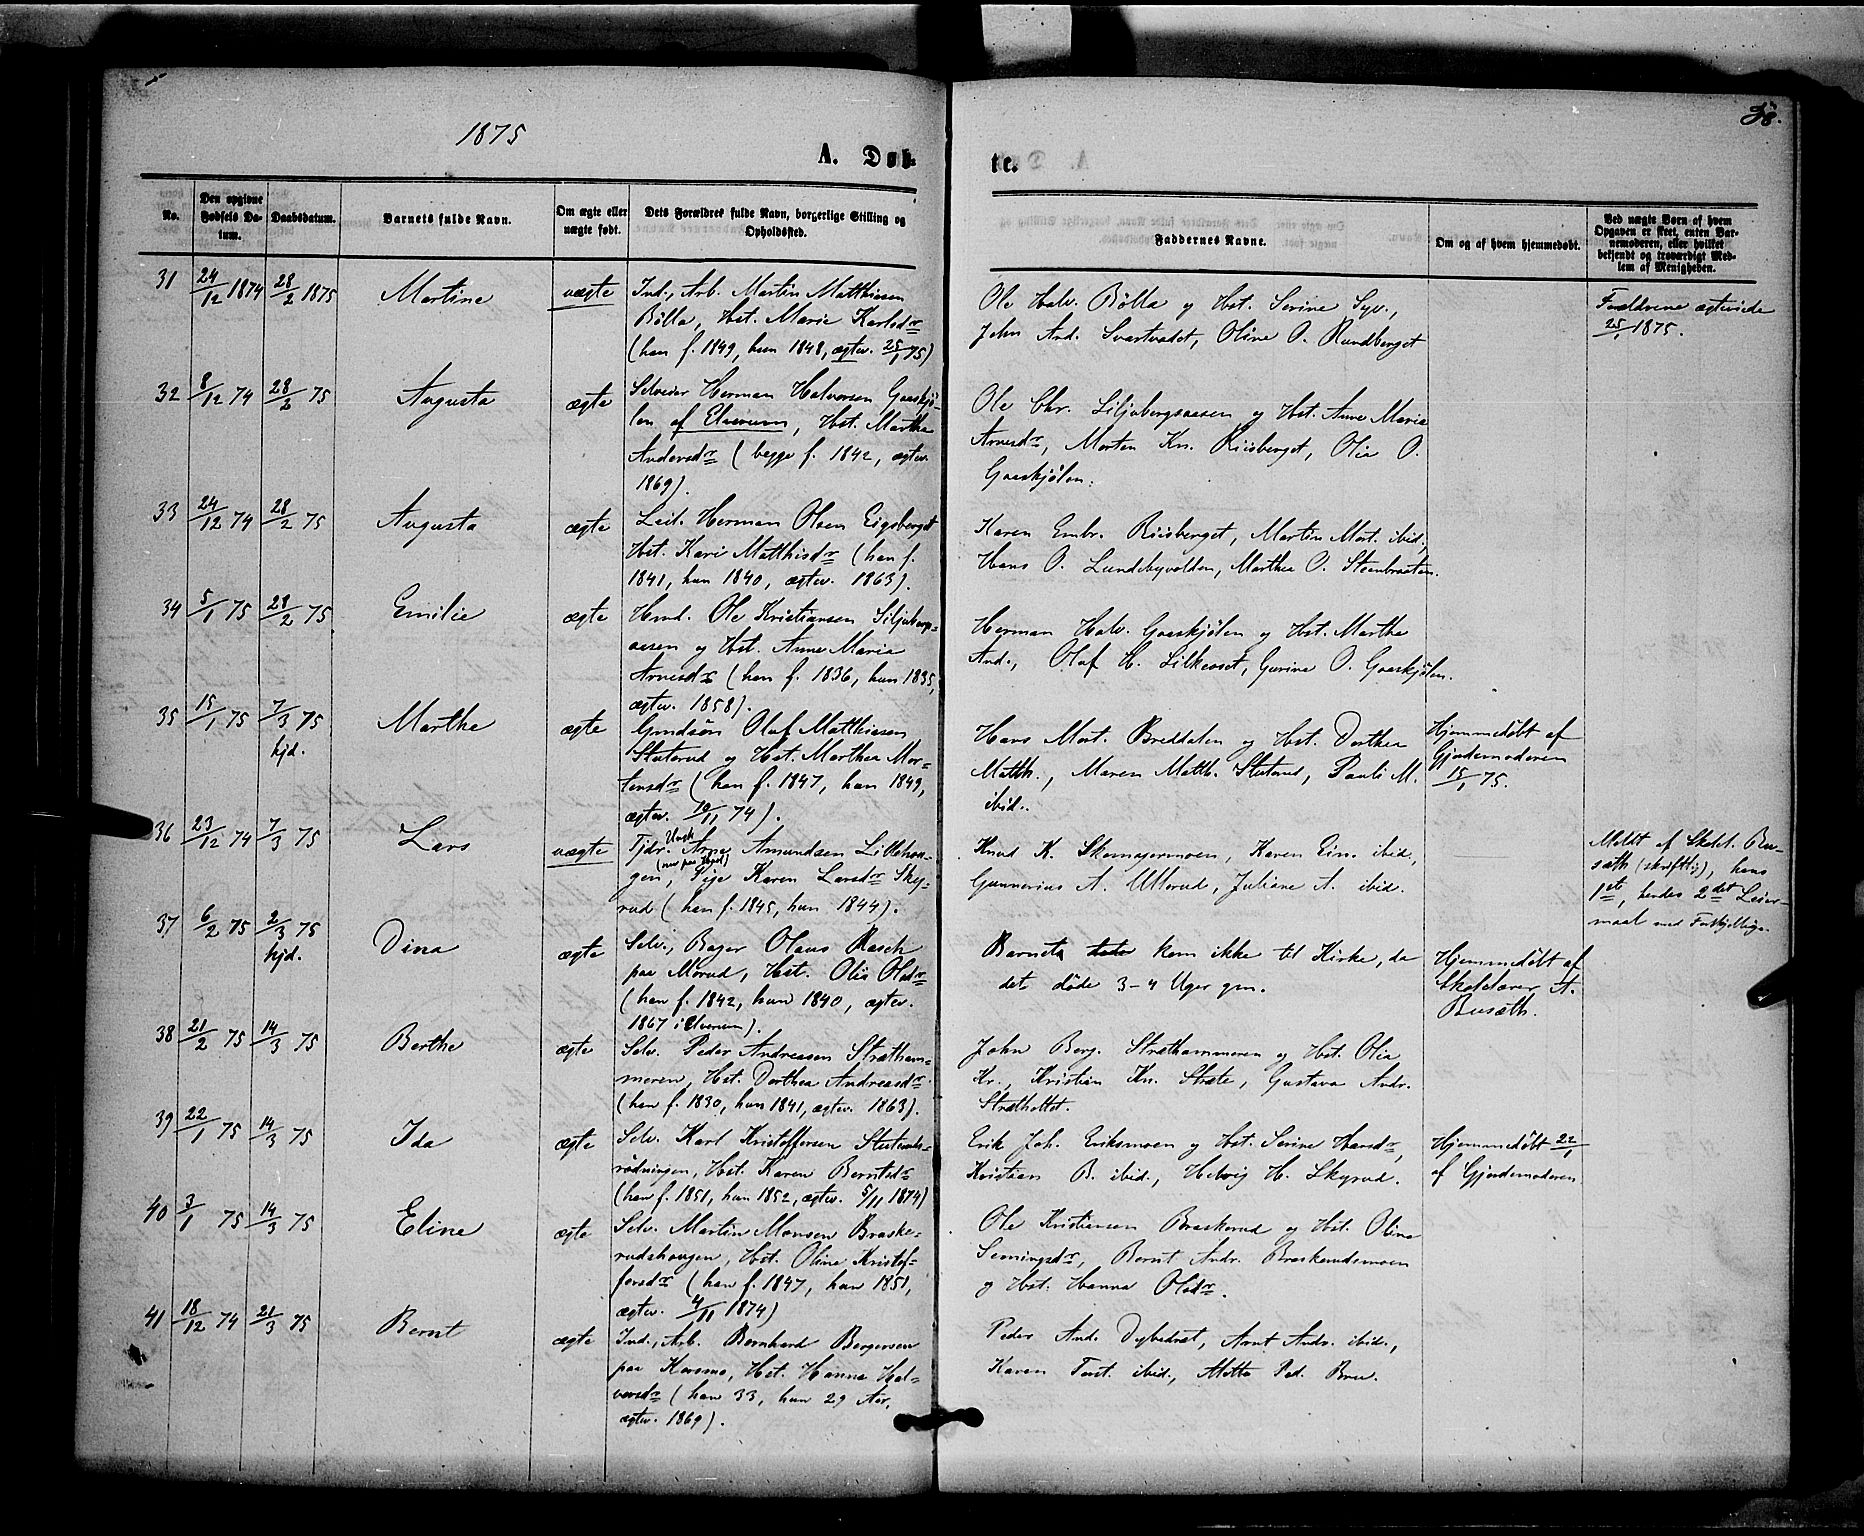 38.
1875
A. Døb-
te.
No.
Den opgivne Fødsels Da-
tum.
Daabsdatum.
Barnets fulde Navn.
Om ægte eller
uægte født.
Dets Forældres fulde Navn, borgerlige Stilling og
Opholdssted.
Faddernes Navne.
Om og af hvem hjemmedøbt.
Ved uægte Børn af hvem
Opgaven er skeet, enten Bar-
nemoderen, eller hvilket
bekjendt og troværdigt Med-
lem af Menigheden.
31 24/12 1874 28/2 1875 Martine uægte Ind., Arb. Martin Matthiesen
Bølla, Hst. Marie Karlsdr
(han f. 1849, hun 1848, ægtev. 25/1 75)
Ole Halv. Bølla og Hst. Serine Syv.,
John And. Svartvadet, Oline O. Rundberget
Forældrene ægteviede
25/1 1875.
32 8/12 74 28/2 75 Augusta ægte Selveier Herman Halvorsen Gaaskjø-
len af Elverum, Hst. Marthe
Andersdr (begge f. 1842, ægtev.
1869).
Ole Chr. Siljubergsaasen og Hst. Anne Maria
Arnesdr, Morten Kn. Riisberget, Olia O.
Gaaskjølen.
33 24/12 74 28/2 75 Augusta ægte Leil. Herman Olsen Eigsberget
Hst. Kari Matthisdr (han f.
1841, hun 1840, ægtev. 1863).
Karen Embr. Riisberget, Martin Mort. ibid.,
Hans O. Lundebyvolden, Marthea O. Steenbraaten.
34 5/1 75 28/2 75 Emilie ægte Hmd. Ole Kristiansen Siljubergs-
aasen og Hst. Anne Maria
Arnesdr (han f. 1836, hun 1835,
ægtev. 1858).
Herman Halv. Gaaskjølen og Hst. Marthe
And., Olaf H. Lilkeaset, Gurine O. Gaaskjølen.
35 15/1 75 7/3 75
hjd.
Marthe ægte Gmdsøn Olaf Matthiesen
Stuterud og Hst. Marthea Mor-
tensdr (han f. 1847, hun 1849,
ægtev. 10/11 74).
Hans Mort. Breddalen og Hst. Dorthea
Matth., Maren Matth. Stuterud, Pauli M.
ibid.
Hjemmedøbt af
Gjordemoderen
15/1 75.
36 23/12 74 7/3 75 Lars uægte Tjdr. Ungk. Arne Amundsen Lillehau-
gen, Pige Karen Larsdr Sky-
rud (han f. 1845, hun 1844).
Knud K. Skomagermoen, Karen Ein. ibid.,
Gunnerius A. Ullerud, Juliane A. ibid.
Meldt af Skolel. Bu-
sæth (skriftlig), hans
1ste, hendes 2det Leier-
maal med Forskjellige.
37 6/2 75 2/3 75
hjd.
Dina ægte Selv., Bager Olaus Rasch
paa Morud, Hst. Olia Olsdr
(han f. 1842, hun 1840, ægtev.
1867 i Elverum).
Barnet kom ikke til Kirke, da
det døde 3-4 Uger gm.
Hjemmedøbt af
Skolelærer A.
Busæth.
38 21/2 75 14/3 75 Berthe ægte Selv. Peder Andreasen Strætham-
meren, Hst. Dorthea Andreasdr
(han f. 1830, hun 1841, ægtev. 1863).
John Berg. Stræthammeren og Hst. Olia
Kr., Kristian Kn. Stræte, Gustava Andr.
Stræthottet.
39 22/1 75 14/3 75 Ida ægte Selv. Karl Kristoffersen Stuteruds-
rødningen, Hst. Karen Berntsdr
(han f. 1851, hun 1852, ægtev. 5/11 1874)
Erik Joh. Eriksmoen og Hst. Serine Haasdr,
Kristian B. ibid., Helvig H. Skyrud.
Hjemmedøbt 22/1
af Gjordemoderen.
40 3/1 75 14/3 75 Eline ægte Selv. Martin Monsen Braske-
rudshaugen, Hst. Oline Kristof-
fersdr (han f. 1847, hun 1851,
ægtev. 4/11 1874)
Ole Kristiansen Braskerud og Hst. Oline
Semingsdr, Bernt Andr. Braskerudsmoen
og Hst. Hanna Olsdr.
41 18/12 74 21/3 75 Bernt ægte Ind., Arb. Bernhard Bergersen
paa Kosmo, Hst. Hanna Hal-
vorsdr (han 33, hun 29 Aar,
ægtev. 1869).
Peder And. Dybedræt, Arnt Andr. ibid.,
Karen Torst. ibid., Mette Ped. Bru.